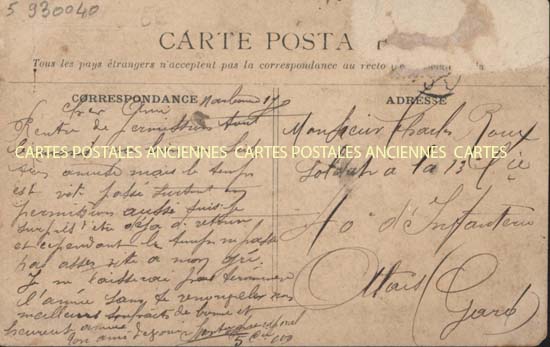 5 930040
CARTE POSTA
Tous les pays étrangers n'acceptent pas la correspondance au recto
CORRESPONDANCE
ADRESSE
Cher Ami
Rentré de permission
CARTES POSTALES ANCIENNES CARTES POSTALES ANCIENNES CARTES
mais le temps
est vite passé surtout en
permission aussi suis-je
surpris d'être déjà de retour
et cependant le temps ne passe
pas assez vite a mon gré.
Je ne laisserai pas terminer
l'année sans te renouveler mes
meilleurs souhaits de bonne et
heureuse année
Ton ami
5
Monsieur Charles Roux
Soldat a la 13 Cie
40e d'Infanterie
Alais
Gard